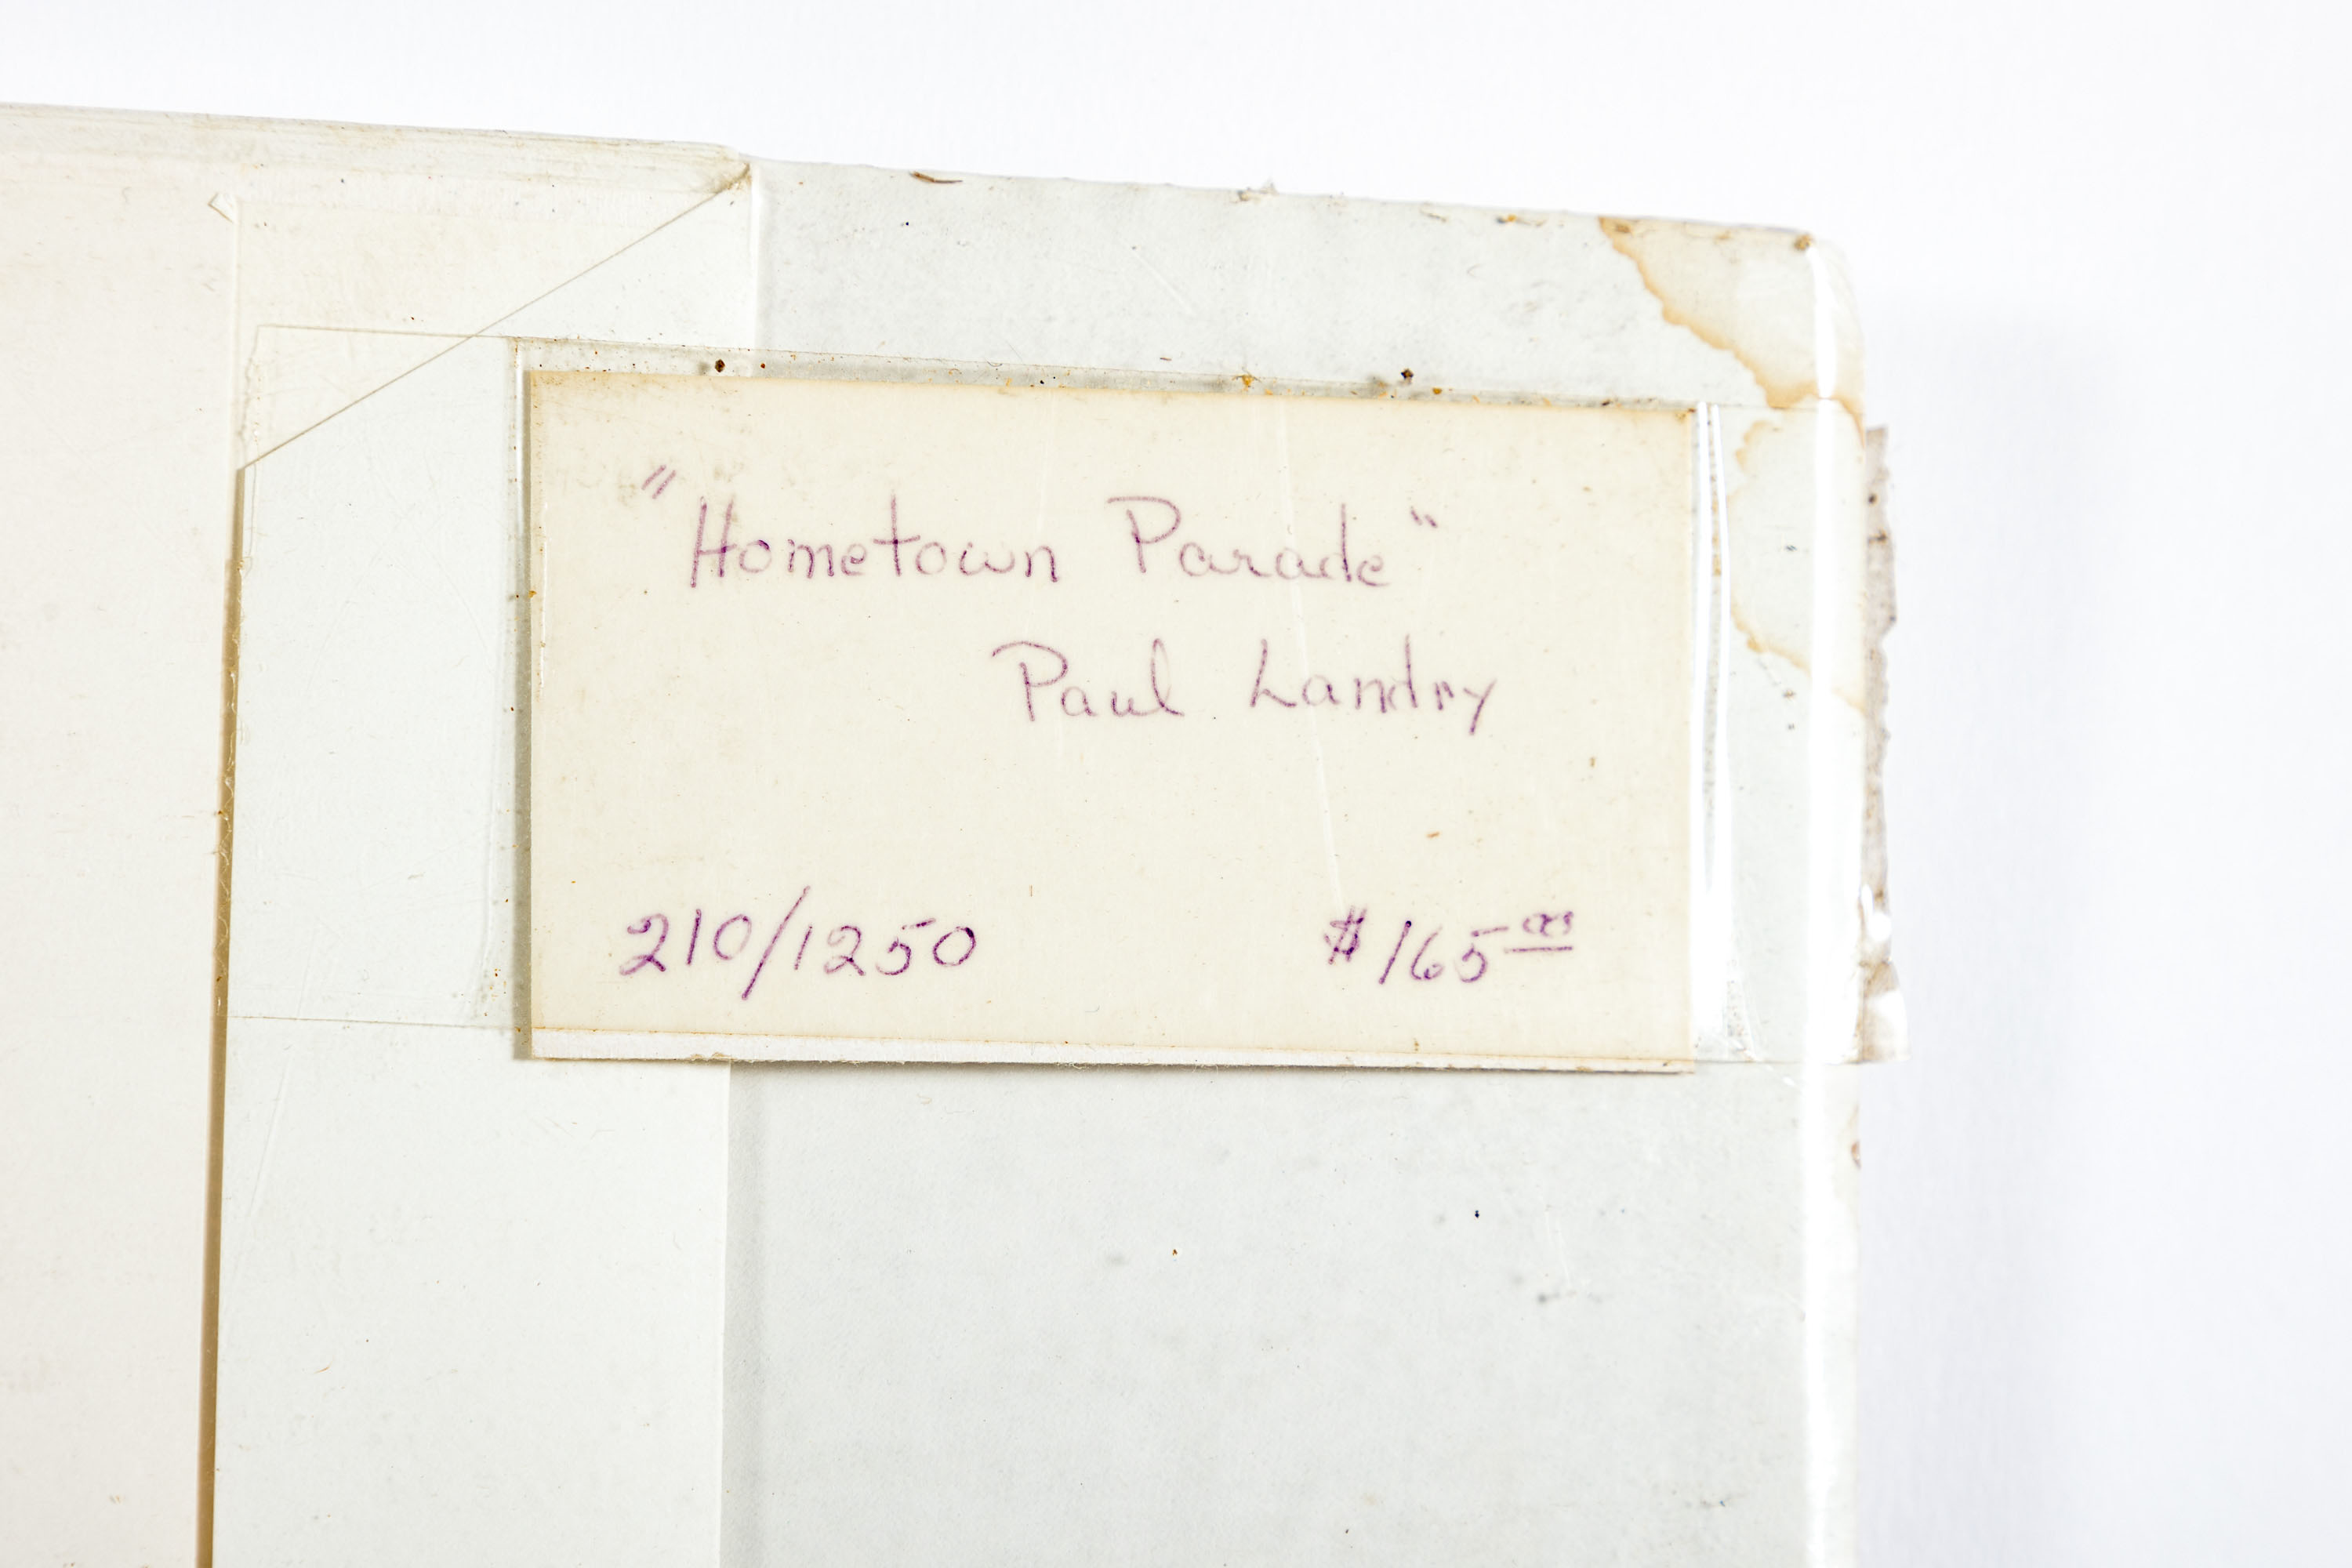 "Hometown Parade"
Paul Landry
210/1250 $165.00